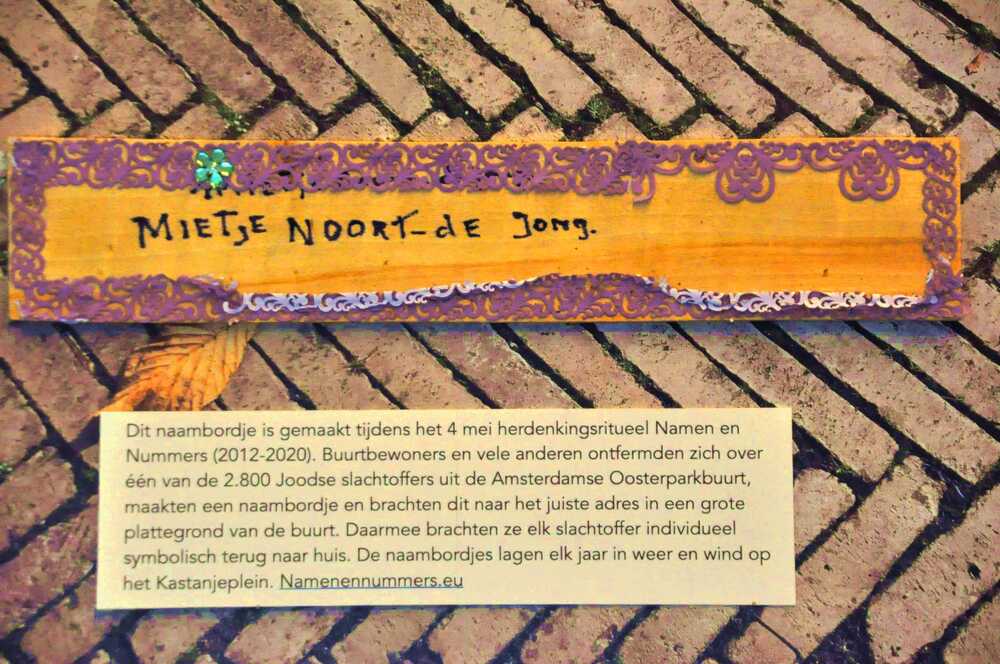 MIETJE NOORT-dE JONG.
Dit naambordje is gemaakt tijdens het 4 mei herdenkingsritueel Namen en
Nummers (2012-2020). Buurtbewoners en vele anderen ontfermden zich over
één van de 2.800 Joodse slachtoffers uit de Amsterdamse Oosterparkbuurt,
maakten een naambordje en brachten dit naar het juiste adres in een grote
plattegrond van de buurt. Daarmee brachten ze elk slachtoffer individueel
symbolisch terug naar huis. De naambordjes lagen elk jaar in weer en wind op
het Kastanjeplein. Namenennummers.eu